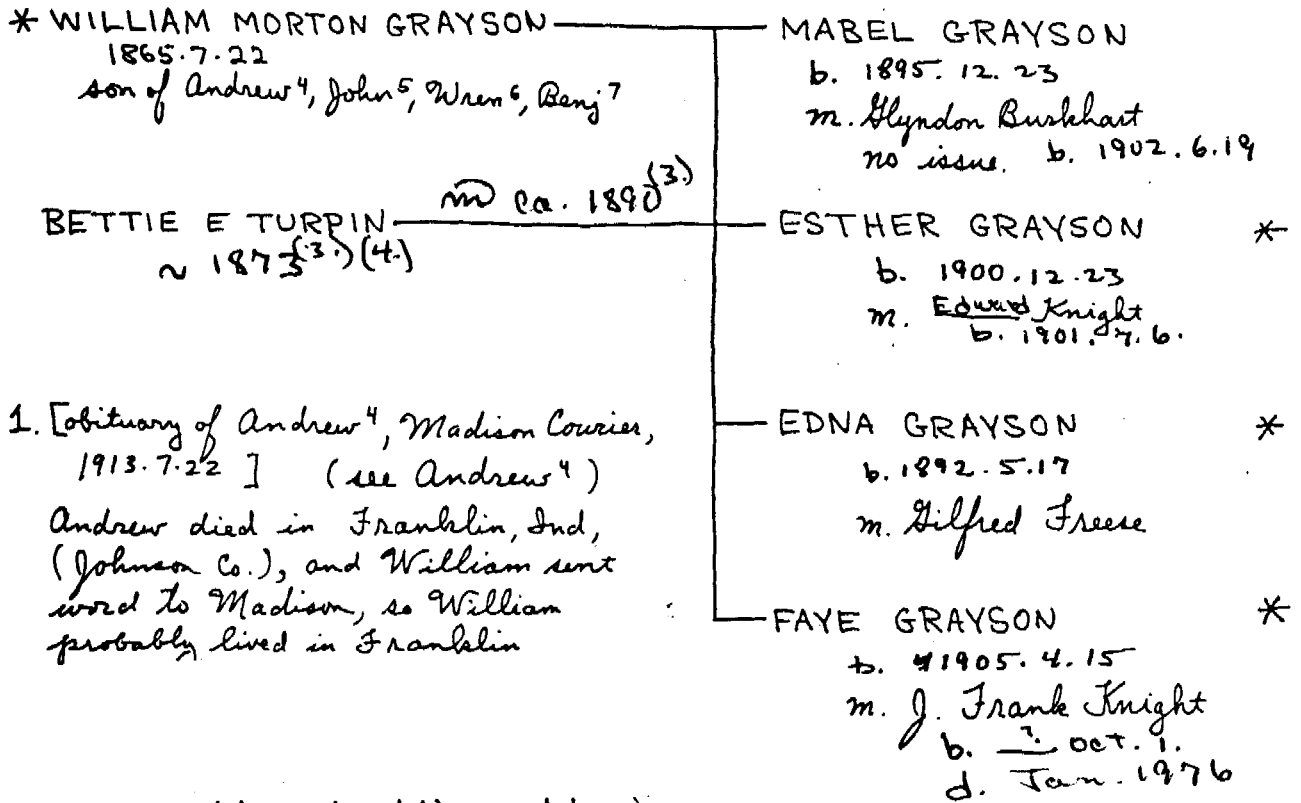 * WILLIAM MORTON GRAYSON
1865.7.22
son of Andrew⁴, John⁵, Wren⁶, Benj⁷
m ca. 1890 (3.)
BETTIE E TURPIN
~ 1873 (3.) (4.)
1. [obituary of Andrew⁴, Madison Courier,
1913.7.22 ] (see Andrew⁴)
Andrew died in Franklin, Ind,
(Johnson Co.), and William sent
word to Madison, so William
probably lived in Franklin
MABEL GRAYSON
b. 1895.12.23
m. Glyndon Burkhart
no issue. b. 1902.6.19
ESTHER GRAYSON *
b. 1900.12.23
m. Edward Knight
b. 1901.7.6.
EDNA GRAYSON *
b. 1892.5.17
m. Gilfred Freese
FAYE GRAYSON *
b. 1905.4.15
m. J. Frank Knight
b. ? Oct. 1.
d. Jan. 1976